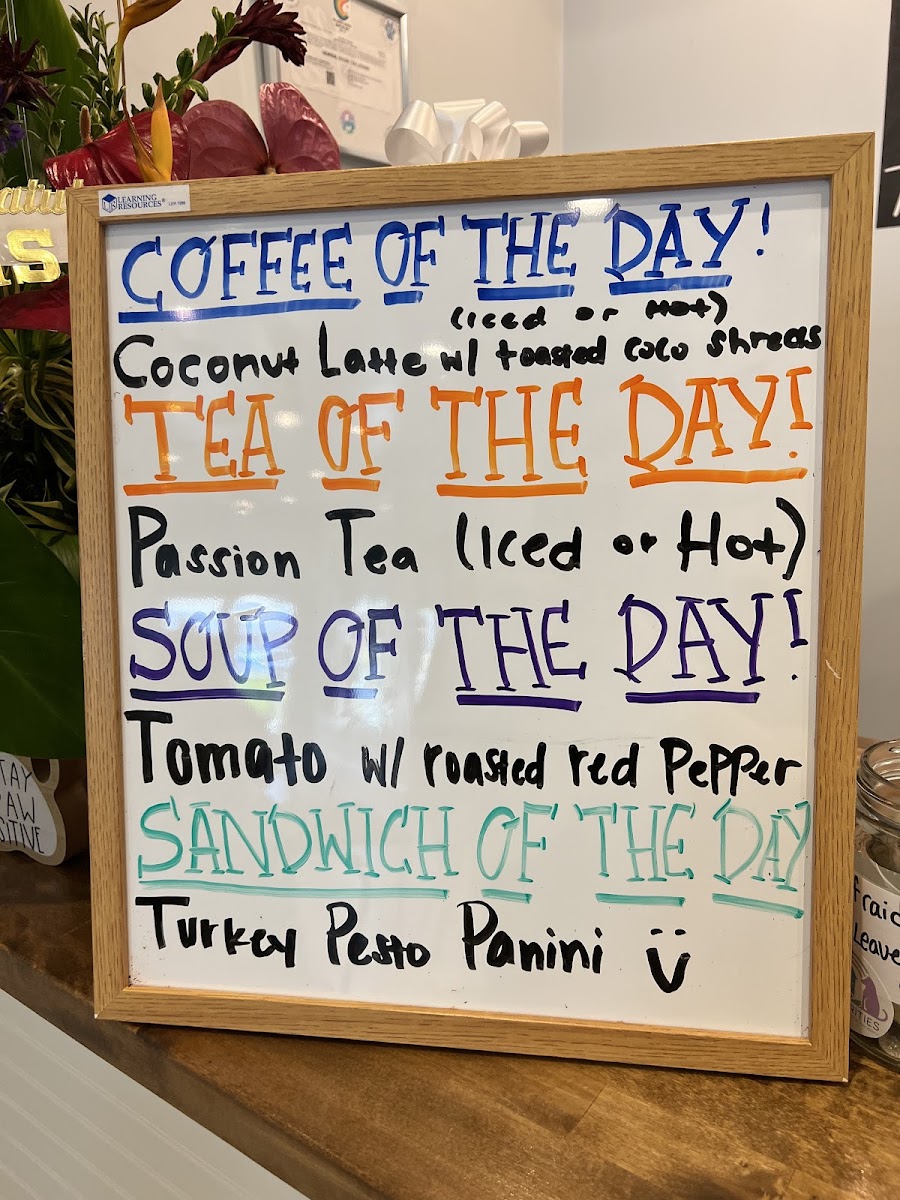 LEARNING
RESOURCES®
COFFEE OF THE DAY!
(Iced or Hot)
Coconut Latte w/ toasted coco shreds
TEA OF THE DAY!
Passion Tea (Iced or Hot)
SOUP OF THE DAY!
Tomato w/ roasted red Pepper
SANDWICH OF THE DAY
Turkey Pesto Panini